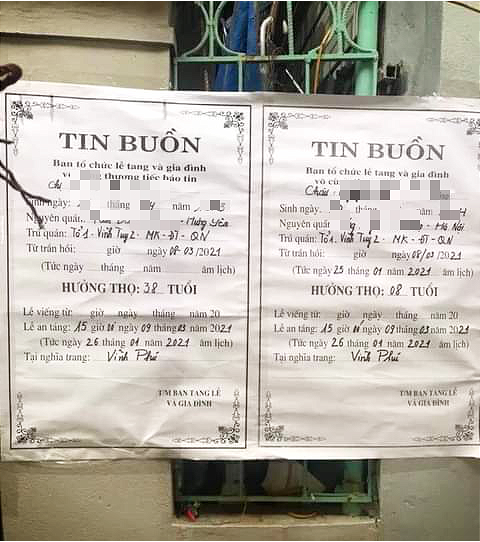 TIN BUỒN
Ban tổ chức lễ tang và gia đình
thương tiếc báo tin
Chị
Sinh ngày: tháng năm
Nguyên quán: - Hưng Yên
Trú quán: Tổ 1 - Vĩnh Tuy 2 - MK - ĐT - QN
Từ trần hồi: giờ ngày 08/03/2021
(Tức ngày tháng năm âm lịch)
HƯỞNG THỌ: 38 TUỔI
Lễ viếng từ: giờ ngày tháng năm 20
Lễ an táng: 15 giờ 00 ngày 09 tháng 03 năm 2021
(Tức ngày 26 tháng 01 năm 2021 âm lịch)
Tại nghĩa trang: Vĩnh Phú
T/M BAN TANG LỄ
VÀ GIA ĐÌNH
TIN BUỒN
Ban tổ chức lễ tang và gia đình
vô cùng thương tiếc báo tin
Cháu
Sinh ngày: tháng năm
Nguyên quán: - Hà Nội
Trú quán: Tổ 1 - Vĩnh Tuy 2 - MK - ĐT - QN
Từ trần hồi: giờ ngày 08/03/2021
(Tức ngày 25 tháng 01 năm 2021 âm lịch)
HƯỞNG THỌ: 08 TUỔI
Lễ viếng từ: giờ ngày tháng năm 20
Lễ an táng: 15 giờ 00 ngày 09 tháng 03 năm 2021
(Tức ngày 26 tháng 01 năm 2021 âm lịch)
Tại nghĩa trang: Vĩnh Phú
T/M BAN TANG LỄ
VÀ GIA ĐÌNH